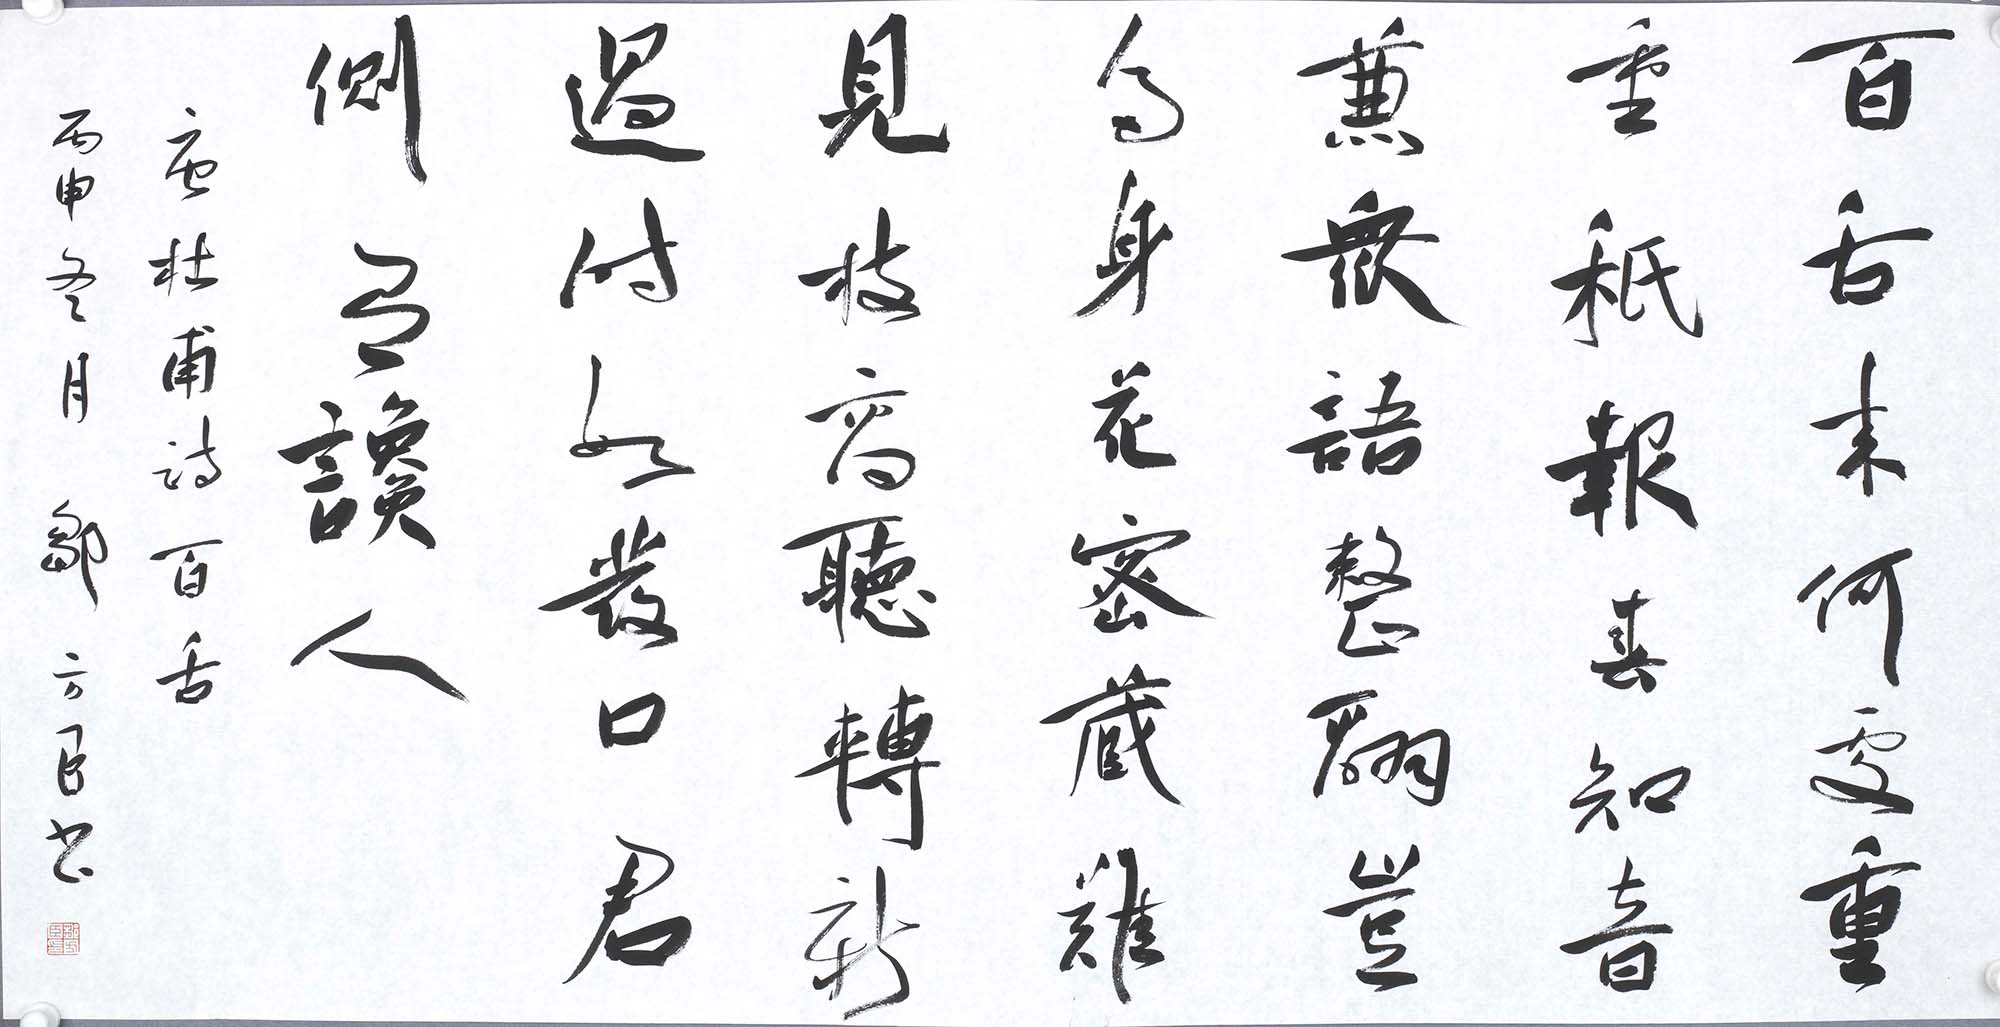 百舌来何處重
重秖報春知音
兼衆語整翮豈
多身花密藏難
見枝高聽轉新
過時如發口君
側有讒人
唐杜甫詩百舌
丙申冬月鄒方臣书